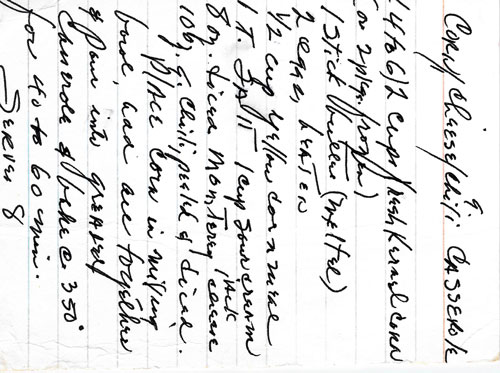 Corn, Cheese/Chili g. Casserole
1 4 to 6) 2 cups fresh kernel corn
or 2 pkg. frozen)
1 stick butter (melted)
2 eggs, beaten
1/2 cup yellow corn meal
1 T. salt 1 cup sour cream
8 oz. diced Monterey Jack cheese
10 oz. g. chili, peeled & diced.
Place corn in mixing
bowl, and add together
& pour into greased
casserole & bake @ 350°
for 40 to 60 min.
Serves 8